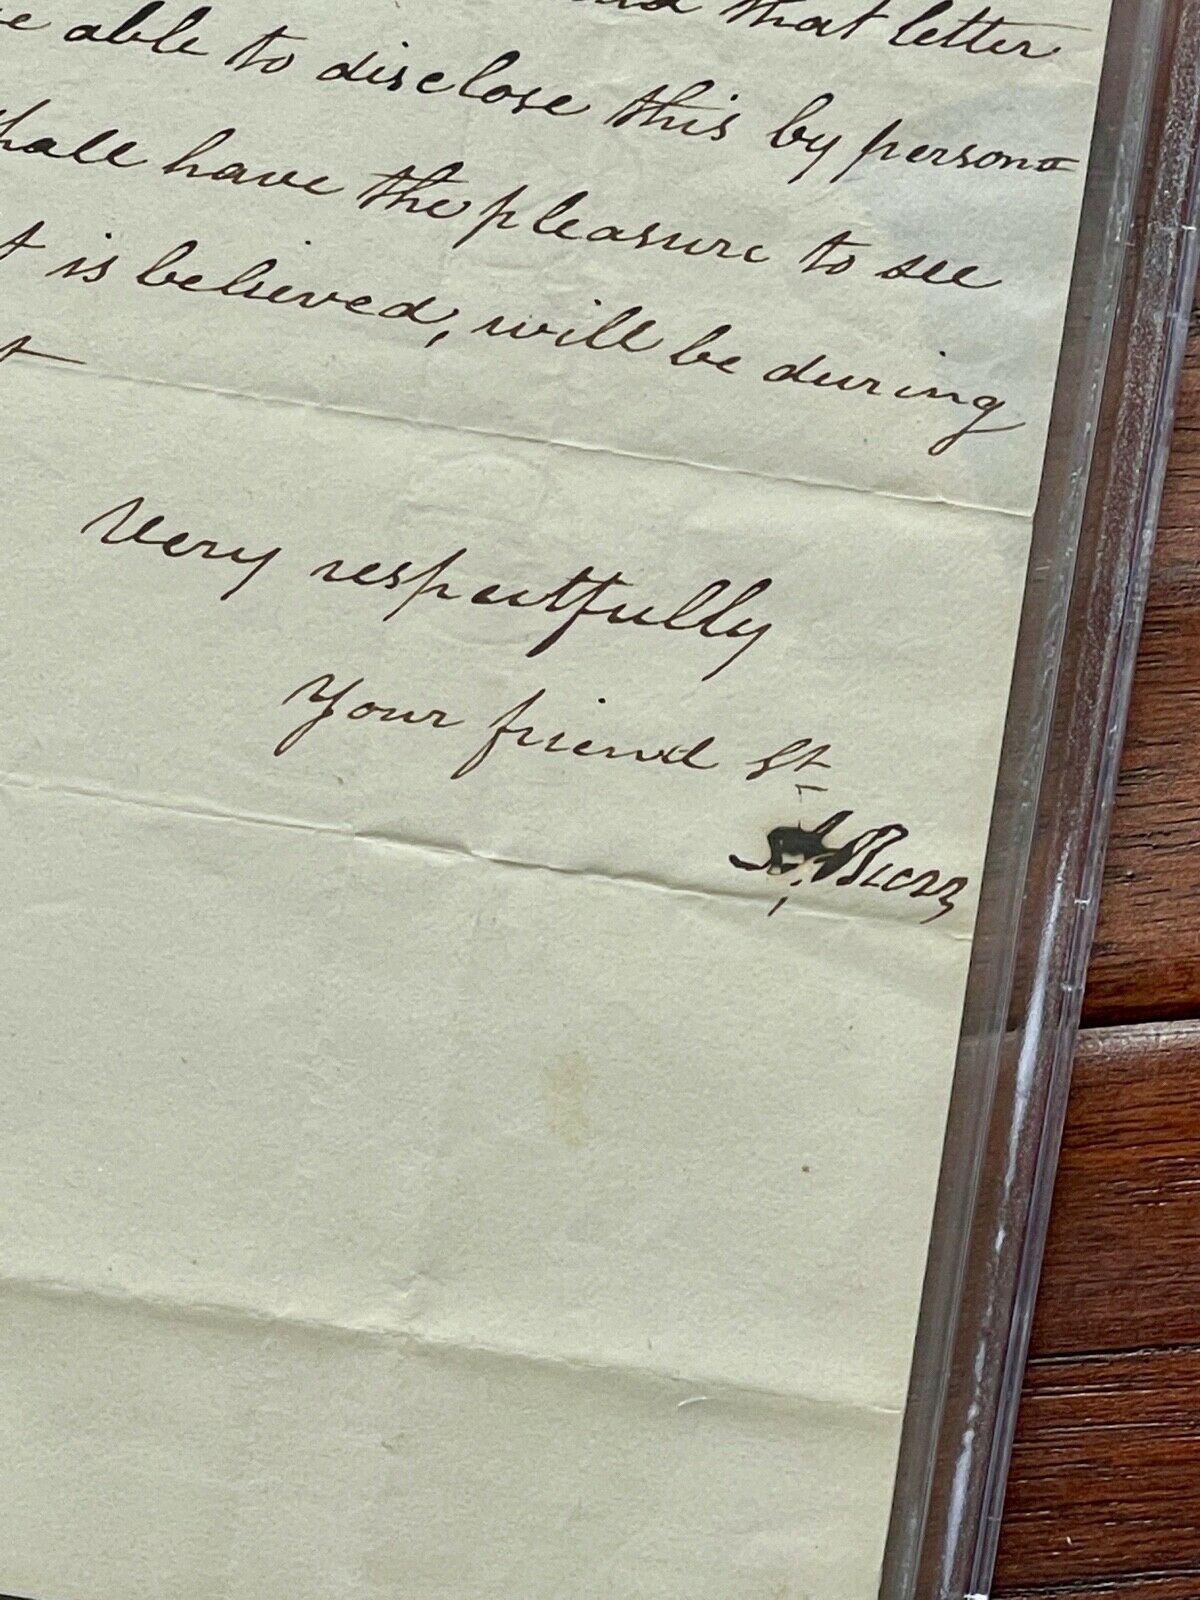 that letter
able to disclose this by persona
hall have the pleasure to see
t is believed, will be during
t
Very respectfully
Your friend St
A Burr